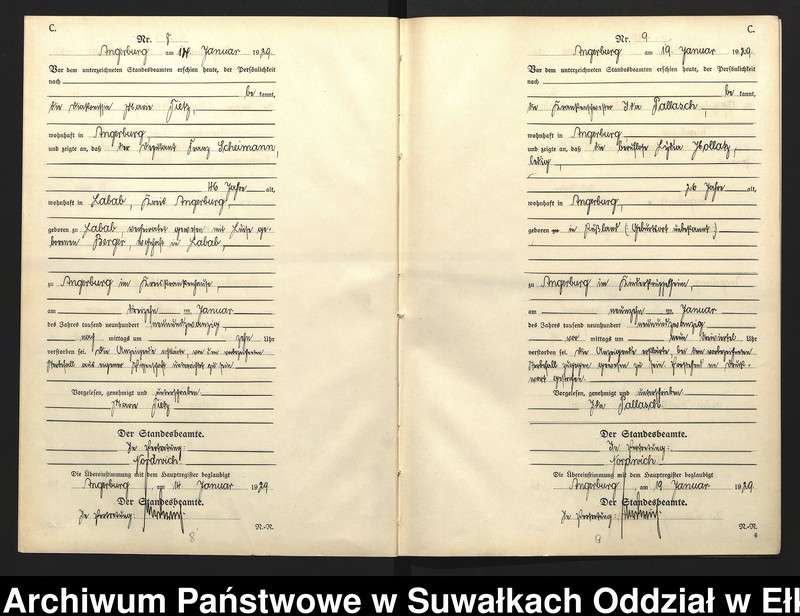 C.
Nr. 8
Angerburg am 14 Januar 1929.
Vor dem unterzeichneten Standesbeamten erschien heute, der Persönlichkeit
nach
be kannt,
die Diakonisse Marie Tietz,
wohnhaft in Angerburg,
und zeigte an, daß der Deputant Franz Scheimann,
46 Jahre alt,
wohnhaft in Labab, Kreis Angerburg,
geboren zu Labab verheiratet gewesen mit Luise ge-
borenen Berger, wohnhaft in Labab,
zu Angerburg im Kreiskrankenhause,
am dreizehn ten Januar
des Jahres tausend neunhundert neunundzwanzig,
nach mittags um zehn Uhr
verstorben sei. Die Anzeigende erklärte, von dem vorbezeichneten
Sterbefall aus eigener Wissenschaft unterrichtet zu sein
Vorgelesen, genehmigt und unterschrieben
Marie Tietz
Der Standesbeamte.
In Vertretung:
Nordwich
Die Übereinstimmung mit dem Hauptregister beglaubigt
Angerburg, am 14. Januar 1929
Der Standesbeamte.
In Vertretung:
N.-R.
8
C.
Nr. 9
Angerburg am 19. Januar 1929
Vor dem unterzeichneten Standesbeamten erschien heute, der Persönlichkeit
nach
be kannt,
die Krankenschwester Ida Pallasch,
wohnhaft in Angerburg,
und zeigte an, daß die berufslose Lydia Hollatz,
ledig,
26 Jahre alt,
wohnhaft in Angerburg,
geboren in Rußland (Geburtsort unbekannt)
zu Angerburg im Kinderkrüppelheim,
am neunzehn ten Januar
des Jahres tausend neunhundert neunundzwanzig
vor mittags um neun dreiviertel Uhr
verstorben sei. Die Anzeigende erklärte, bei dem vorbezeichneten
Sterbefall zugegen gewesen zu sein. Vorstehend ein Druck-
wort gestrichen.
Vorgelesen, genehmigt und unterschrieben
Ida Pallasch.
Der Standesbeamte.
In Vertretung:
Nordwich.
Die Übereinstimmung mit dem Hauptregister beglaubigt
Angerburg, am 19 Januar 1929
Der Standesbeamte.
In Vertretung:
N.-R.
6
9
Archiwum Państwowe w Suwałkach Oddział w Eł